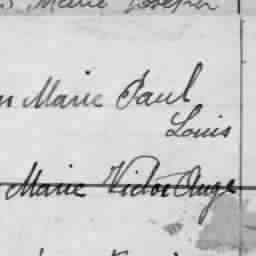 Marie Joseph
n Marie Paul
Louis
Marie Victor Ange